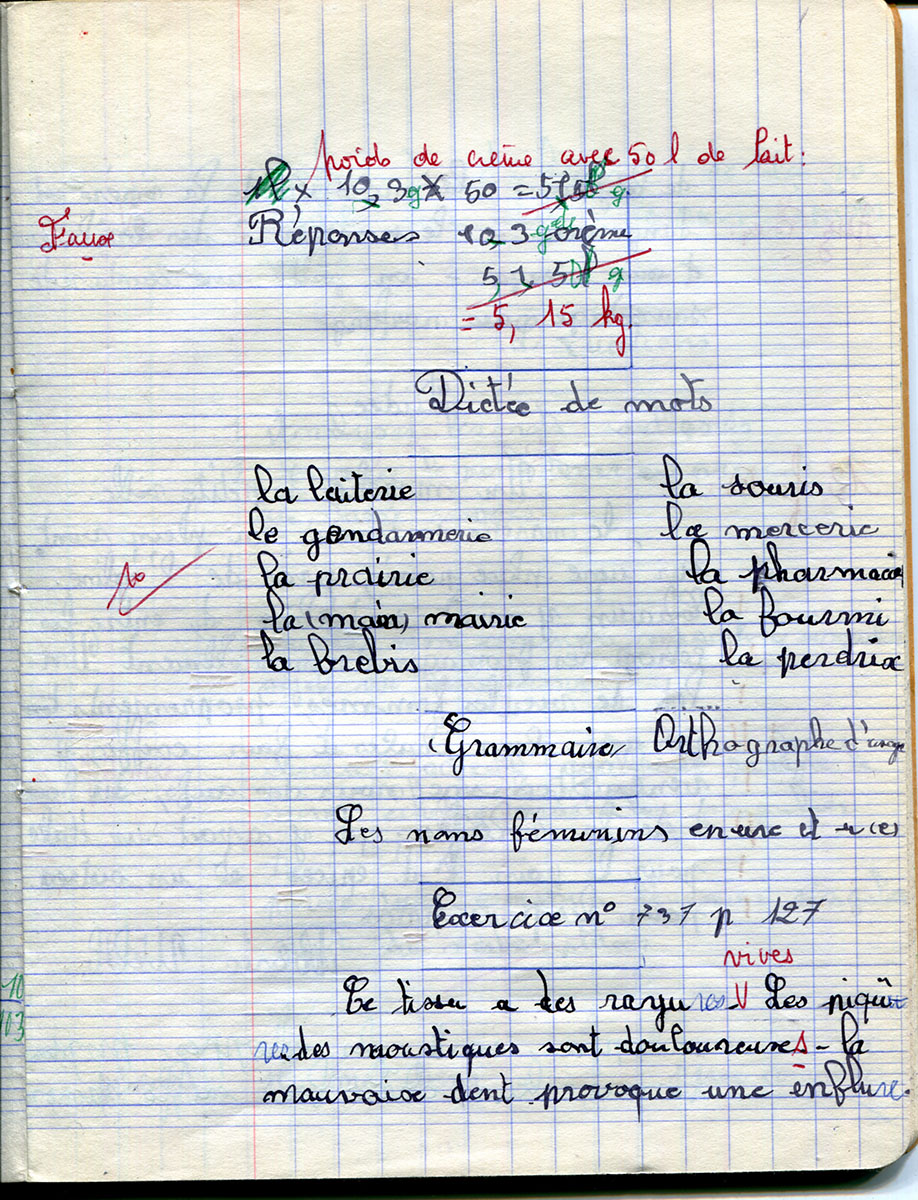 poids de crème avec 50 l de lait:
x 10,3g x 50 = 515 g
Faux
Réponses 10,3 g crème
5,1,5 g
= 5,15 kg.
Dictée de mots
la laiterie la souris
le gendarmerie la mercerie
10 la prairie la pharmacie
la (main) mairie la fourmi
la brebis la perdrix
(Grammaire) Orthographe d'usage
Les noms féminins en ure et
Exercice n° 737 p 127
vives
10 Ce tissu a des rayures V Les piqû
113 res des moustiques sont douloureuses - la
mauvaise dent provoque une enflure.